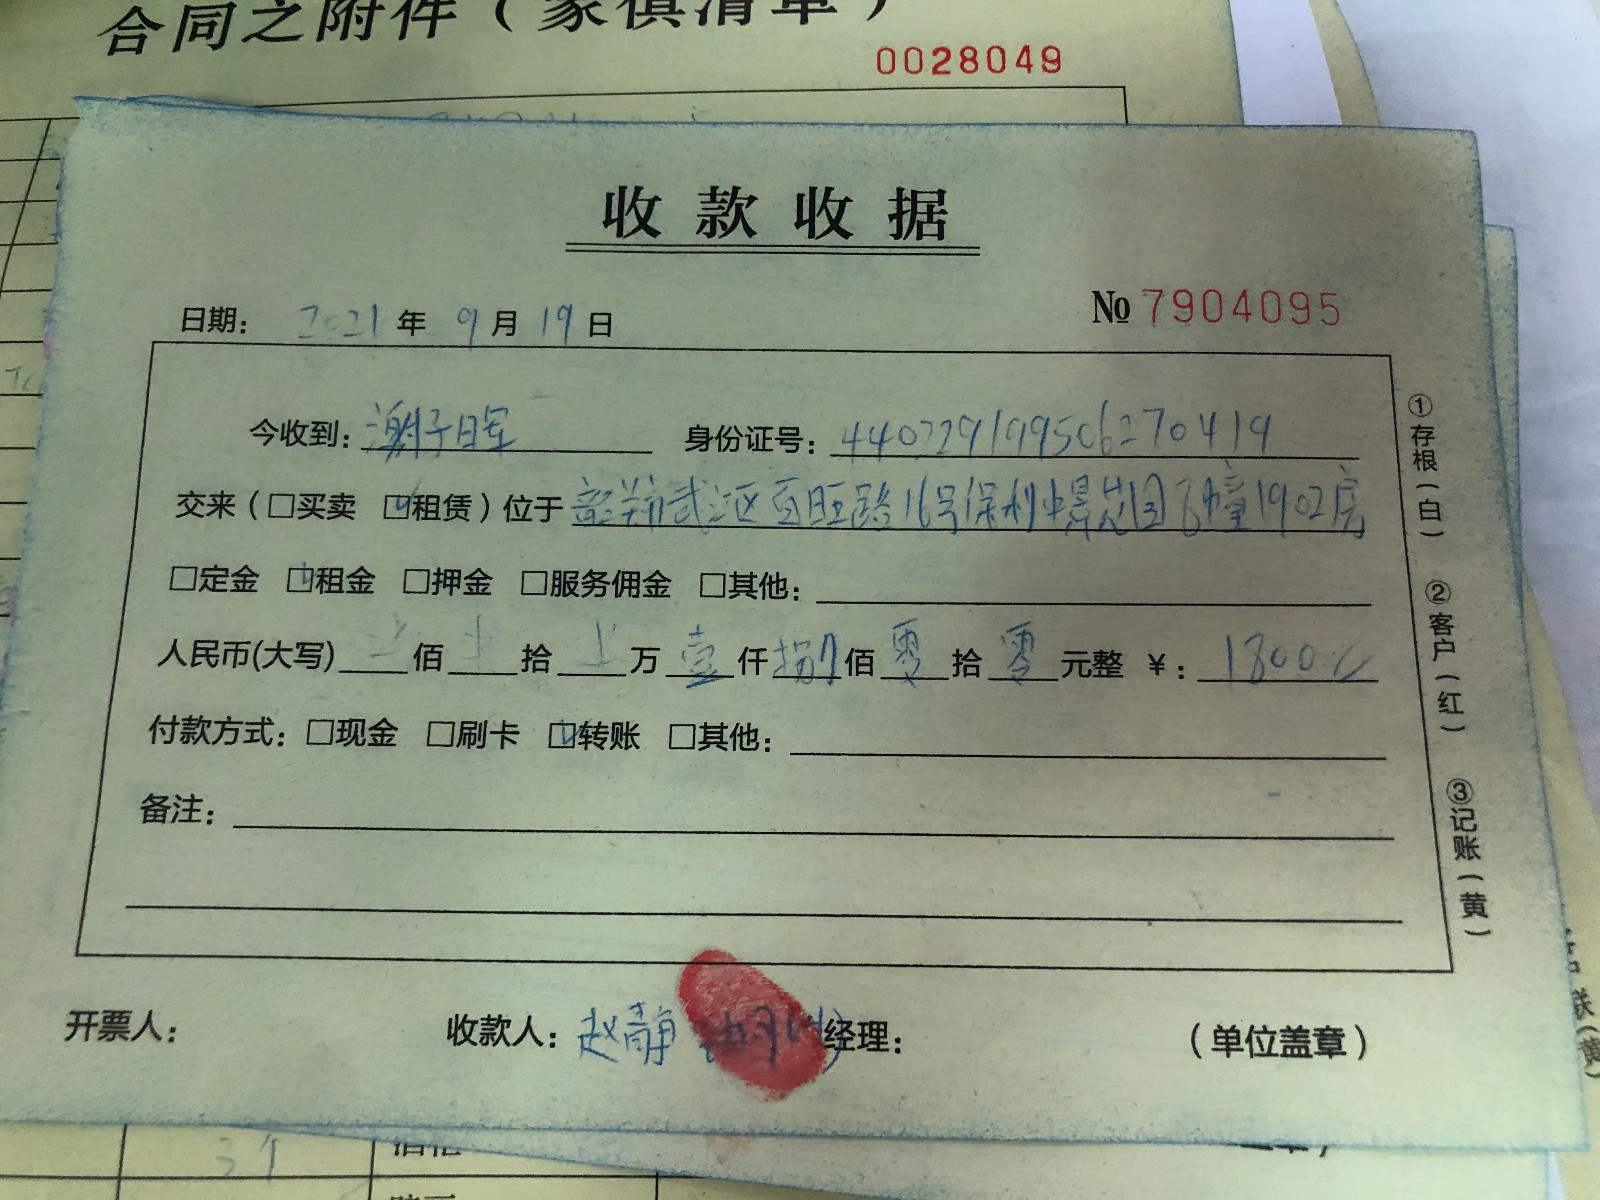 合同之附件（家俱清单）
0028049
收款收据
日期： 2021 年 9 月 19 日
№ 7904095
今收到：谢子晖 身份证号：440229199506270419
交来（□买卖 ☑租赁）位于 韶关市武江区百旺路16号保利中景花园 幢1902房
□定金 ☑租金 □押金 □服务佣金 □其他：
人民币(大写) 佰 拾 万 壹 仟 捌 佰 零 拾 零 元整 ￥：1800
付款方式：□现金 □刷卡 ☑转账 □其他：
备注：
①存根（白） ②客户（红） ③记账（黄）
开票人： 收款人：赵静 经理： （单位盖章）